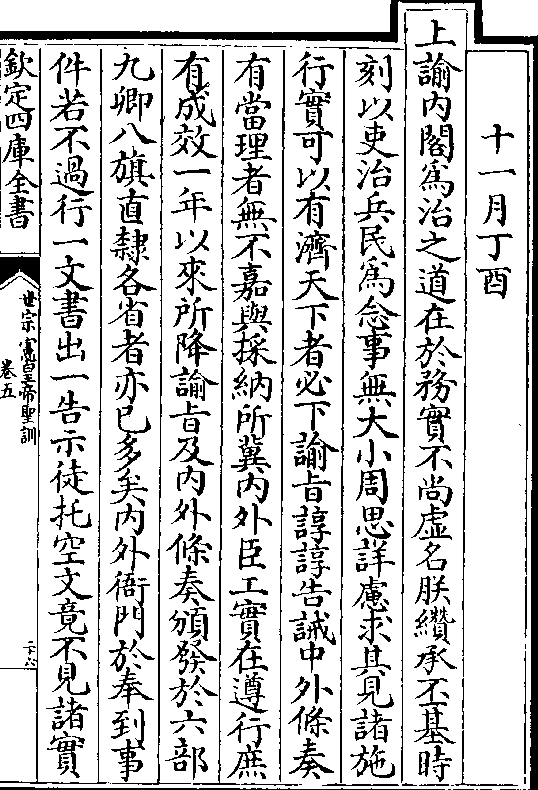 十一月丁酉
上諭内閣為治之道在於務實不尚虚名朕纘承丕基時
刻以吏治兵民為念事無大小周思詳慮求其見諸施
行實可以有濟天下者必下諭旨諄諄告誡中外條奏
有當理者無不嘉與採納所冀内外臣工實在遵行庶
有成效一年以來所降諭旨及内外條奏頒發於六部
九卿八旗直隸各省者亦已多矣内外衙門於奉到事
件若不過行一文書出一告示徒托空文竟不見諸實
欽定四庫全書
世宗憲皇帝聖訓
卷五
二十六